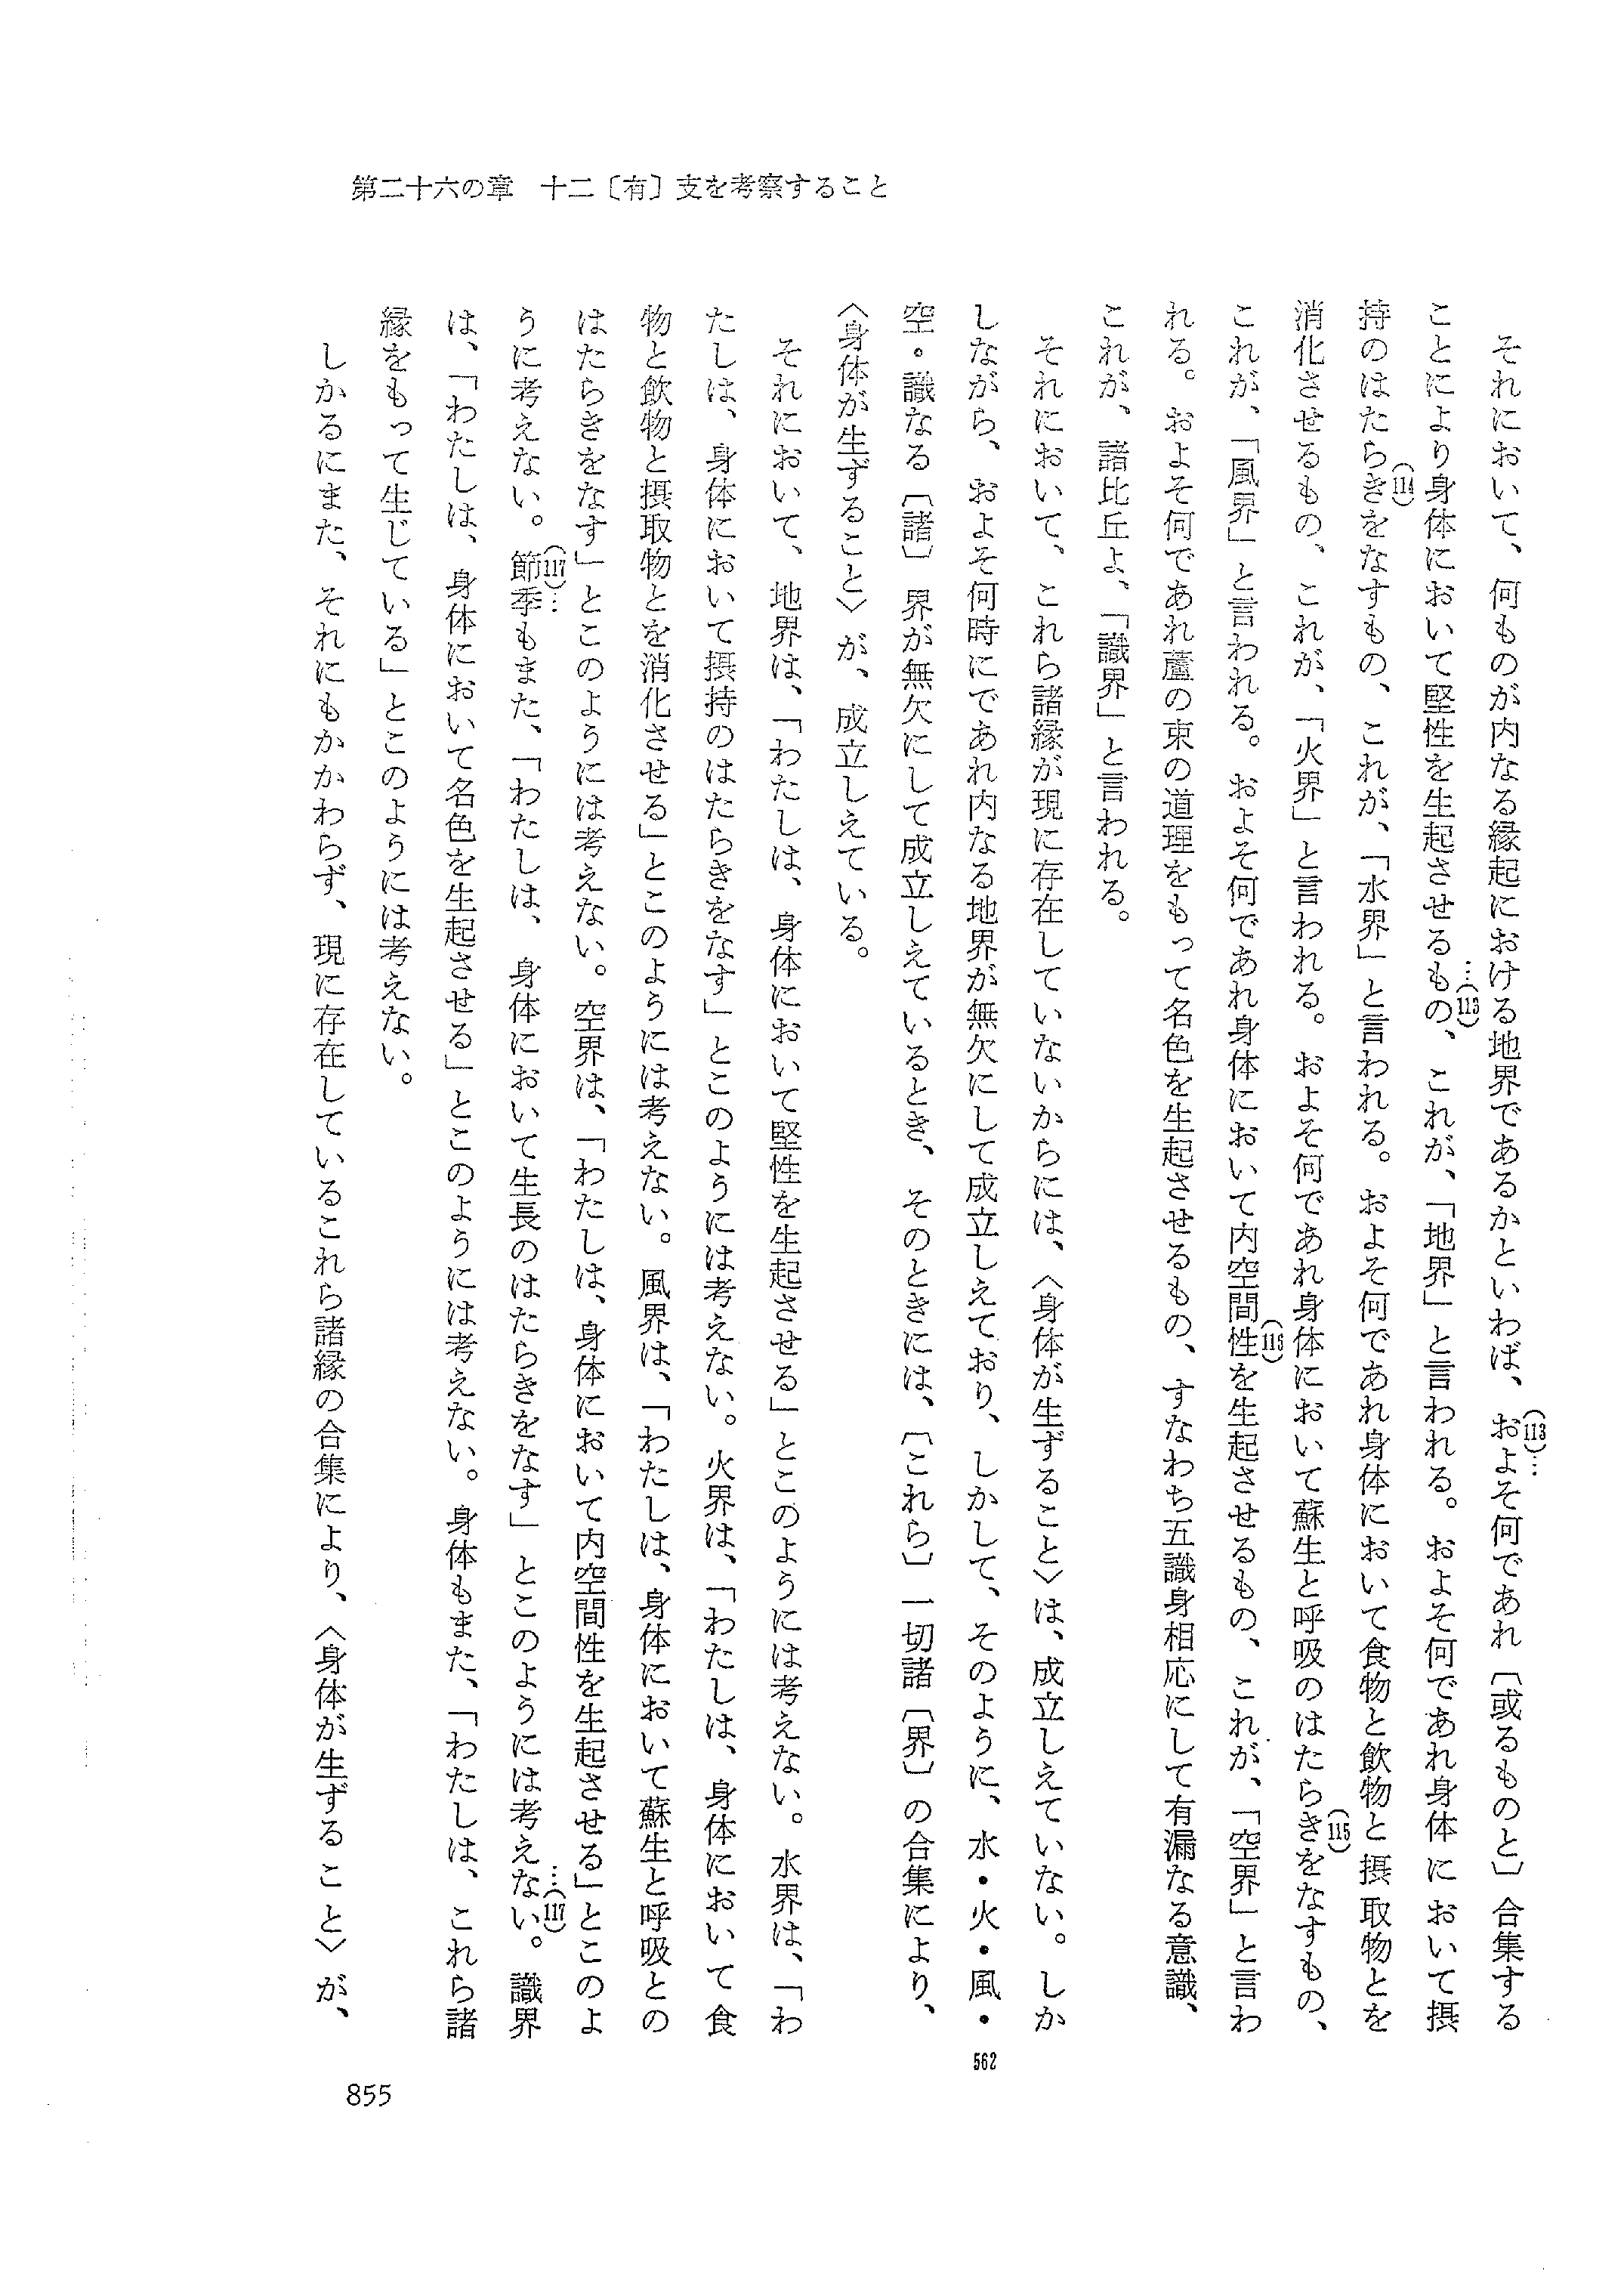 第二十六の章　十二〔有〕支を考察すること
　それにおいて、何ものが内なる縁起における地界であるかといわば、(113)…およそ何であれ〔或るものと〕合集する
ことにより身体において堅性を生起させるもの…(113)、これが、「地界」と言われる。およそ何であれ身体において摂
持のはたらき(114)をなすもの、これが、「水界」と言われる。およそ何であれ身体において食物と飲物と摂取物とを
消化させるもの、これが、「火界」と言われる。およそ何であれ身体において蘇生と呼吸のはたらき(115)をなすもの、
これが、「風界」と言われる。およそ何であれ身体において内空間性(116)を生起させるもの、これが、「空界」と言わ
れる。およそ何であれ蘆の束の道理をもって名色を生起させるもの、すなわち五識身相応にして有漏なる意識、
これが、諸比丘よ、「識界」と言われる。
　それにおいて、これら諸縁が現に存在していないからには、〈身体が生ずること〉は、成立しえていない。しか
しながら、およそ何時にであれ内なる地界が無欠にして成立しえており、しかして、そのように、水・火・風・
空・識なる〔諸〕界が無欠にして成立しえているとき、そのときには、〔これら〕一切諸〔界〕の合集により、
〈身体が生ずること〉が、成立しえている。
　それにおいて、地界は、「わたしは、身体において堅性を生起させる」とこのようには考えない。水界は、「わ
たしは、身体において摂持のはたらきをなす」とこのようには考えない。火界は、「わたしは、身体において食
物と飲物と摂取物とを消化させる」とこのようには考えない。風界は、「わたしは、身体において蘇生と呼吸との
はたらきをなす」とこのようには考えない。空界は、「わたしは、身体において内空間性を生起させる」とこのよ
うに考えない。(117)…節季もまた、「わたしは、身体において生長のはたらきをなす」とこのようには考えない…(117)。識界
は、「わたしは、身体において名色を生起させる」とこのようには考えない。身体もまた、「わたしは、これら諸
縁をもって生じている」とこのようには考えない。
　しかるにまた、それにもかかわらず、現に存在しているこれら諸縁の合集により、〈身体が生ずること〉が、
562
855